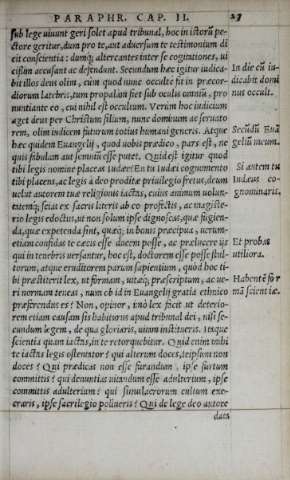 PARAPHR. CAP. II. 27
sub lege uiuunt geri solet apud tribunal, hoc in istorũ pe-
ctore geritur, dum pro te, aut aduersum te testimonium di
cit conscientia: dumq; altercantes inter se cogitationes, ui
cissim accusant ac defendunt. Secundum hæc igitur iudica-
bit illos deus olim, cum quod nunc occulte fit in præcor-
diorum latebris, tum propalàm fiet sub oculis omniũ, pro
nuntiante eo, cui nihil est occultum. Verùm hoc iudicium
aget deus per Christum filium, nunc dominum ac seruato
rem, olim iudicem futurum totius humani generis. Atque
hæc quidem Euangelij, quod uobis prædico, pars est, ne
quis fabulam aut somniũ esse putet. Quid est igitur quod
tibi legis nomine placeas iudæe? En tu Iudæi cognomento
tibi places, ac legis à deo proditæ priuilegio fretus, deum
uelut autorem tuæ religionis iactas, cuius animum uolun-
tatemq; scias ex sacris literis ab eo profectis, ac magiste-
rio legis edoctus, ut non solum ipse dignoscas, quæ fugien-
da, quæ expetenda sint, quæq; in bonis præcipua, uerum-
etiam confidas te cæcis esse ducem posse, ac prælucere ijs
qui in tenebris uersantur, hoc est, doctorem esse posse stul-
torum, atque eruditorem parum sapientium, quòd hoc ti-
bi præstiterit lex, ut formam, uitæq; præscriptum, ac ue-
ri normam teneas, num ob id in Euangelij gratia ethnico
præferendus es? Non, opinor, imò lex facit ut deterio-
rem etiam causam sis habiturus apud tribunal dei, nisi se-
cundum legem, de qua gloriaris, uitam institueris. Itaque
scientia quam iactas, in te retorquebitur. Quid enim mihi
te iactas legis ostentator? qui alterum doces, teipsum non
doces? Qui prædicas non esse furandum, ipse furtum
committis? qui denuntias uitandum esse adulterium, ipse
committis adulterium? qui simulacrorum cultum exe-
craris, ipse sacrilegio pollueris? Qui de lege deo autore
data
In die cũ iu-
dicabit domi
nus occult.
Secũdũ Euã
gelium meum.
Si autem tu
Iudæus co-
gnominaris.
Et probas
utiliora.
Habentẽ for
mã scientiæ.